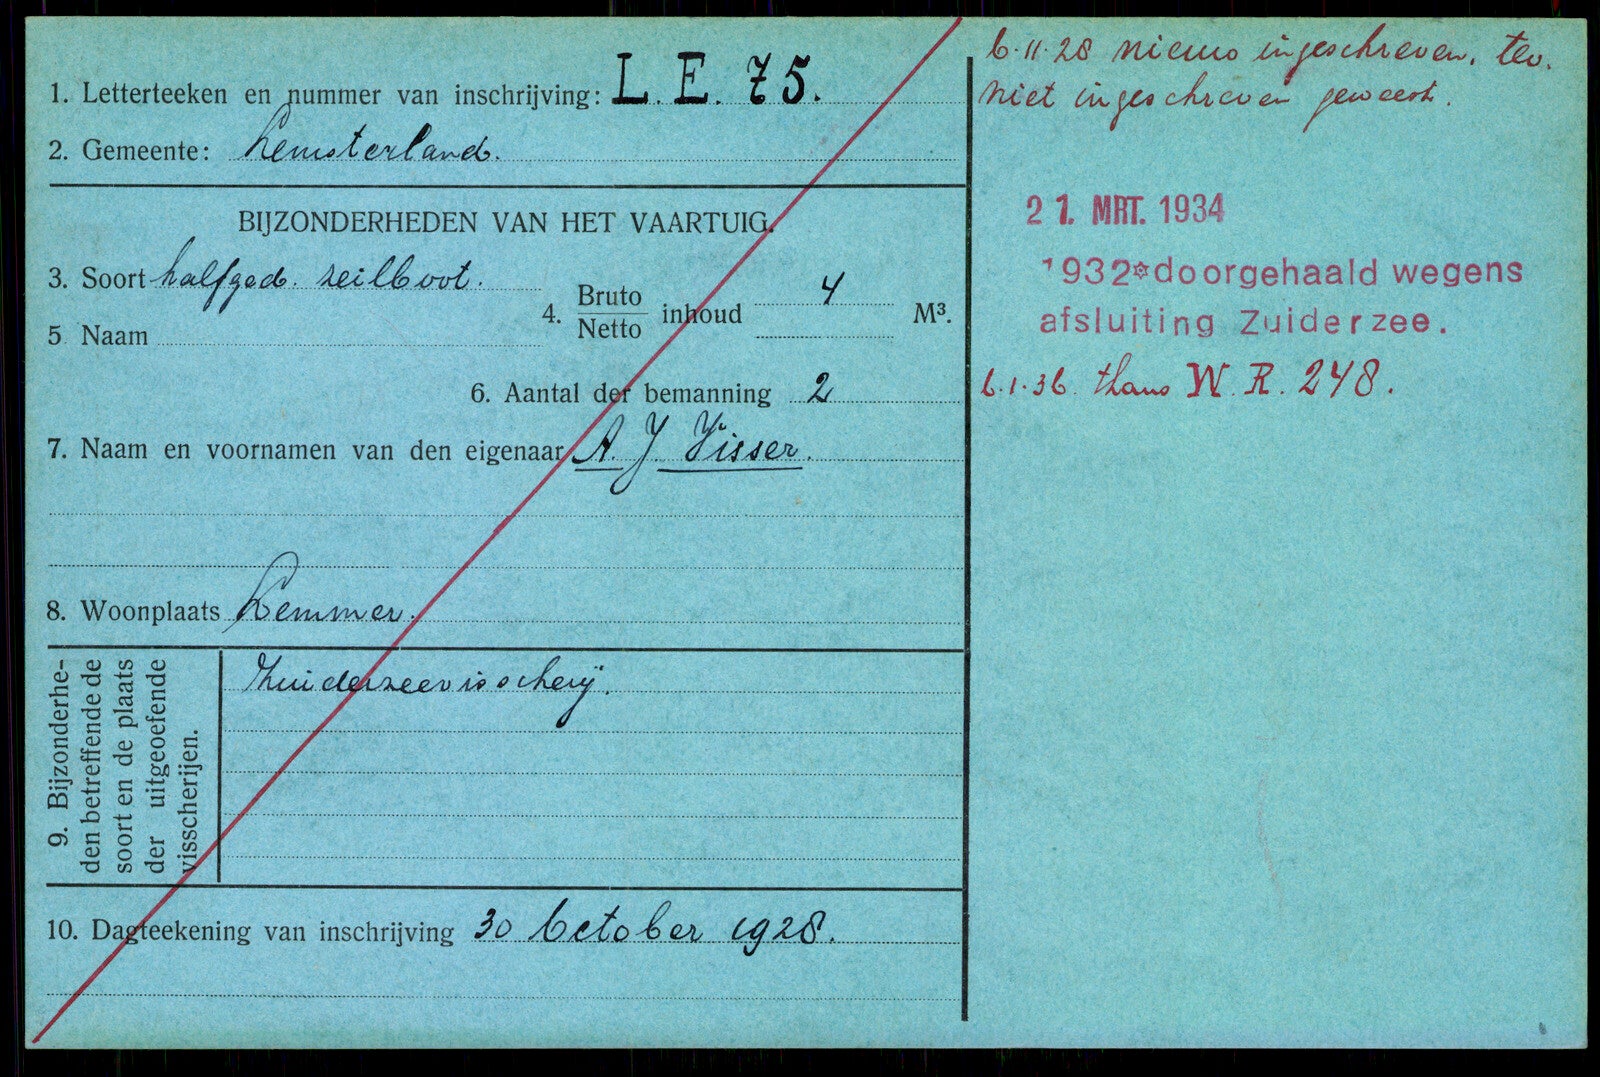 1. Letterteeken en nummer van inschrijving: L. E. 75.
2. Gemeente: Lemsterland.
BIJZONDERHEDEN VAN HET VAARTUIG.
3. Soort halfged. zeilboot.
4. Bruto
Netto inhoud 4 M³.
5 Naam
6. Aantal der bemanning 2
7. Naam en voornamen van den eigenaar A. J Visser.
8. Woonplaats Lemmer.
9. Bijzonderhe-
den betreffende de
soort en de plaats
der uitgeoefende
visscherijen.
Zuiderzeevisscherij.
10. Dagteekening van inschrijving 30 October 1928.
6.11.28 nieuw ingeschreven. tev.
niet ingeschreven geweest.
21. MRT. 1934
1932*doorgehaald wegens
afsluiting Zuiderzee.
6.1.36. thans W. R. 248.